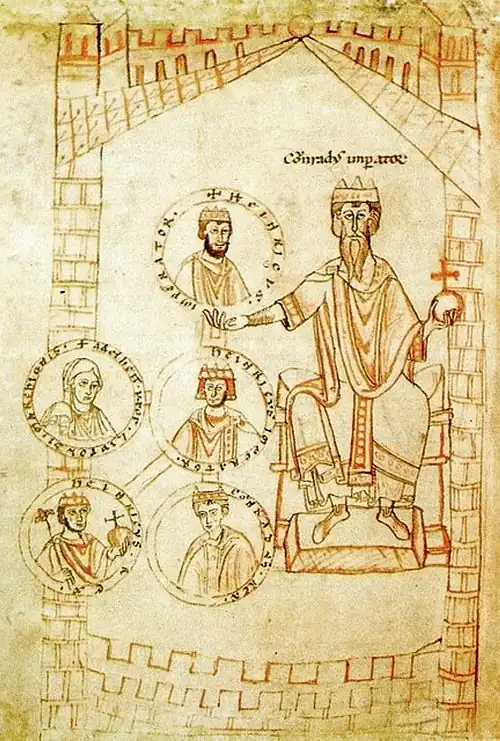 Conradus imperator
+ HEINRICUS · IMPERATOR ·
HEINRICUS IMPERATOR ·
HEINRICUS REX ·
CONRADUS REX ·